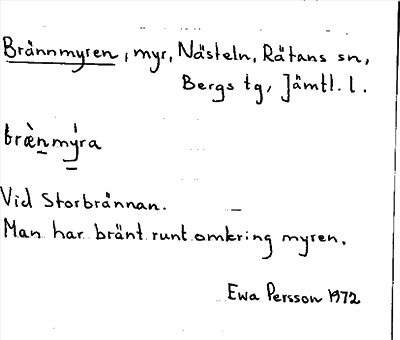 Brännmyren, myr, Nästeln, Rätans sn,
Bergs tg, Jämtl. l.
bræ̀nmýra
Vid Storbrännan.
Man har bränt runt omkring myren.
Ewa Persson 1972